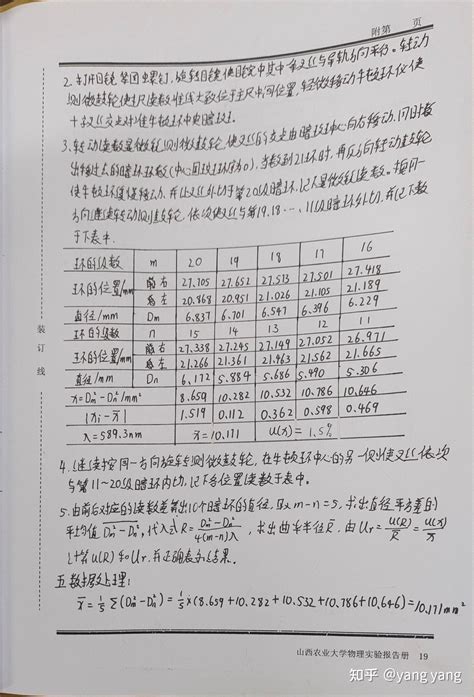 附第 页
2. 打开目镜紧固螺钉,旋转目镜使目定中其中一条叉丝与导轨方向平行。转动
测微鼓轮使主尺读数准线大致位于主尺中间位置,轻微移动牛顿环仪使
十字叉丝交点对准牛顿环中央暗斑。
3. 转动读数显微镜测微鼓轮,使叉丝的交点由暗斑中心向右移动,同时数
出移过去的暗环环数(中心圆斑环序为0),当数到21环时,再反方向转动鼓轮
使牛顿环慢慢移动,并让叉丝外切于第20级暗环,记下显微镜读数。按同一
方向连续转动测微鼓轮,依次使叉丝与第19、18…、11级暗环外切,并记下数
于下表中.
环的级数 m 20 19 18 17 16
环的位置/mm 暗右 27.705 27.652 27.573 27.501 27.418
左 20.868 20.951 21.026 21.105 21.189
直径/mm Dm 6.837 6.701 6.547 6.396 6.229
环的级数 n 15 14 13 12 11
环的位置/mm 右 27.338 27.245 27.149 27.052 26.971
左 21.266 21.361 21.463 21.562 21.665
直径/mm Dn 6.172 5.884 5.686 5.490 5.306
x=Dm²-Dn²/mm² 8.659 10.282 10.532 10.786 10.646
|xi-x̄| 1.519 0.112 0.362 0.598 0.469
λ=589.3nm x̄=10.171 u(x)=1.5%
4. 继续按同一方向旋转测微鼓轮,在牛顿环中心的另一侧使叉丝依次
与第11~20级暗环内切,记下各位置读数于表中。
5. 由前后对应的读数差算出10个暗环的直径,取m-n=5,求出直径平方差的
平均值 Dm²-Dn²,代入式R=Dm²-Dn²/4(m-n)λ,求出曲率半径R̄,由Ur=u(R)/R̄=u(x)/x̄
计算u(R)和Ur,并正确表示结果。
五、数据处理:
x̄=1/5 Σ(Dm²-Dn²)=1/5×(8.659+10.282+10.532+10.786+10.646)=10.171mm²
装订线
山西农业大学物理实验报告册 19
知乎 @yang yang